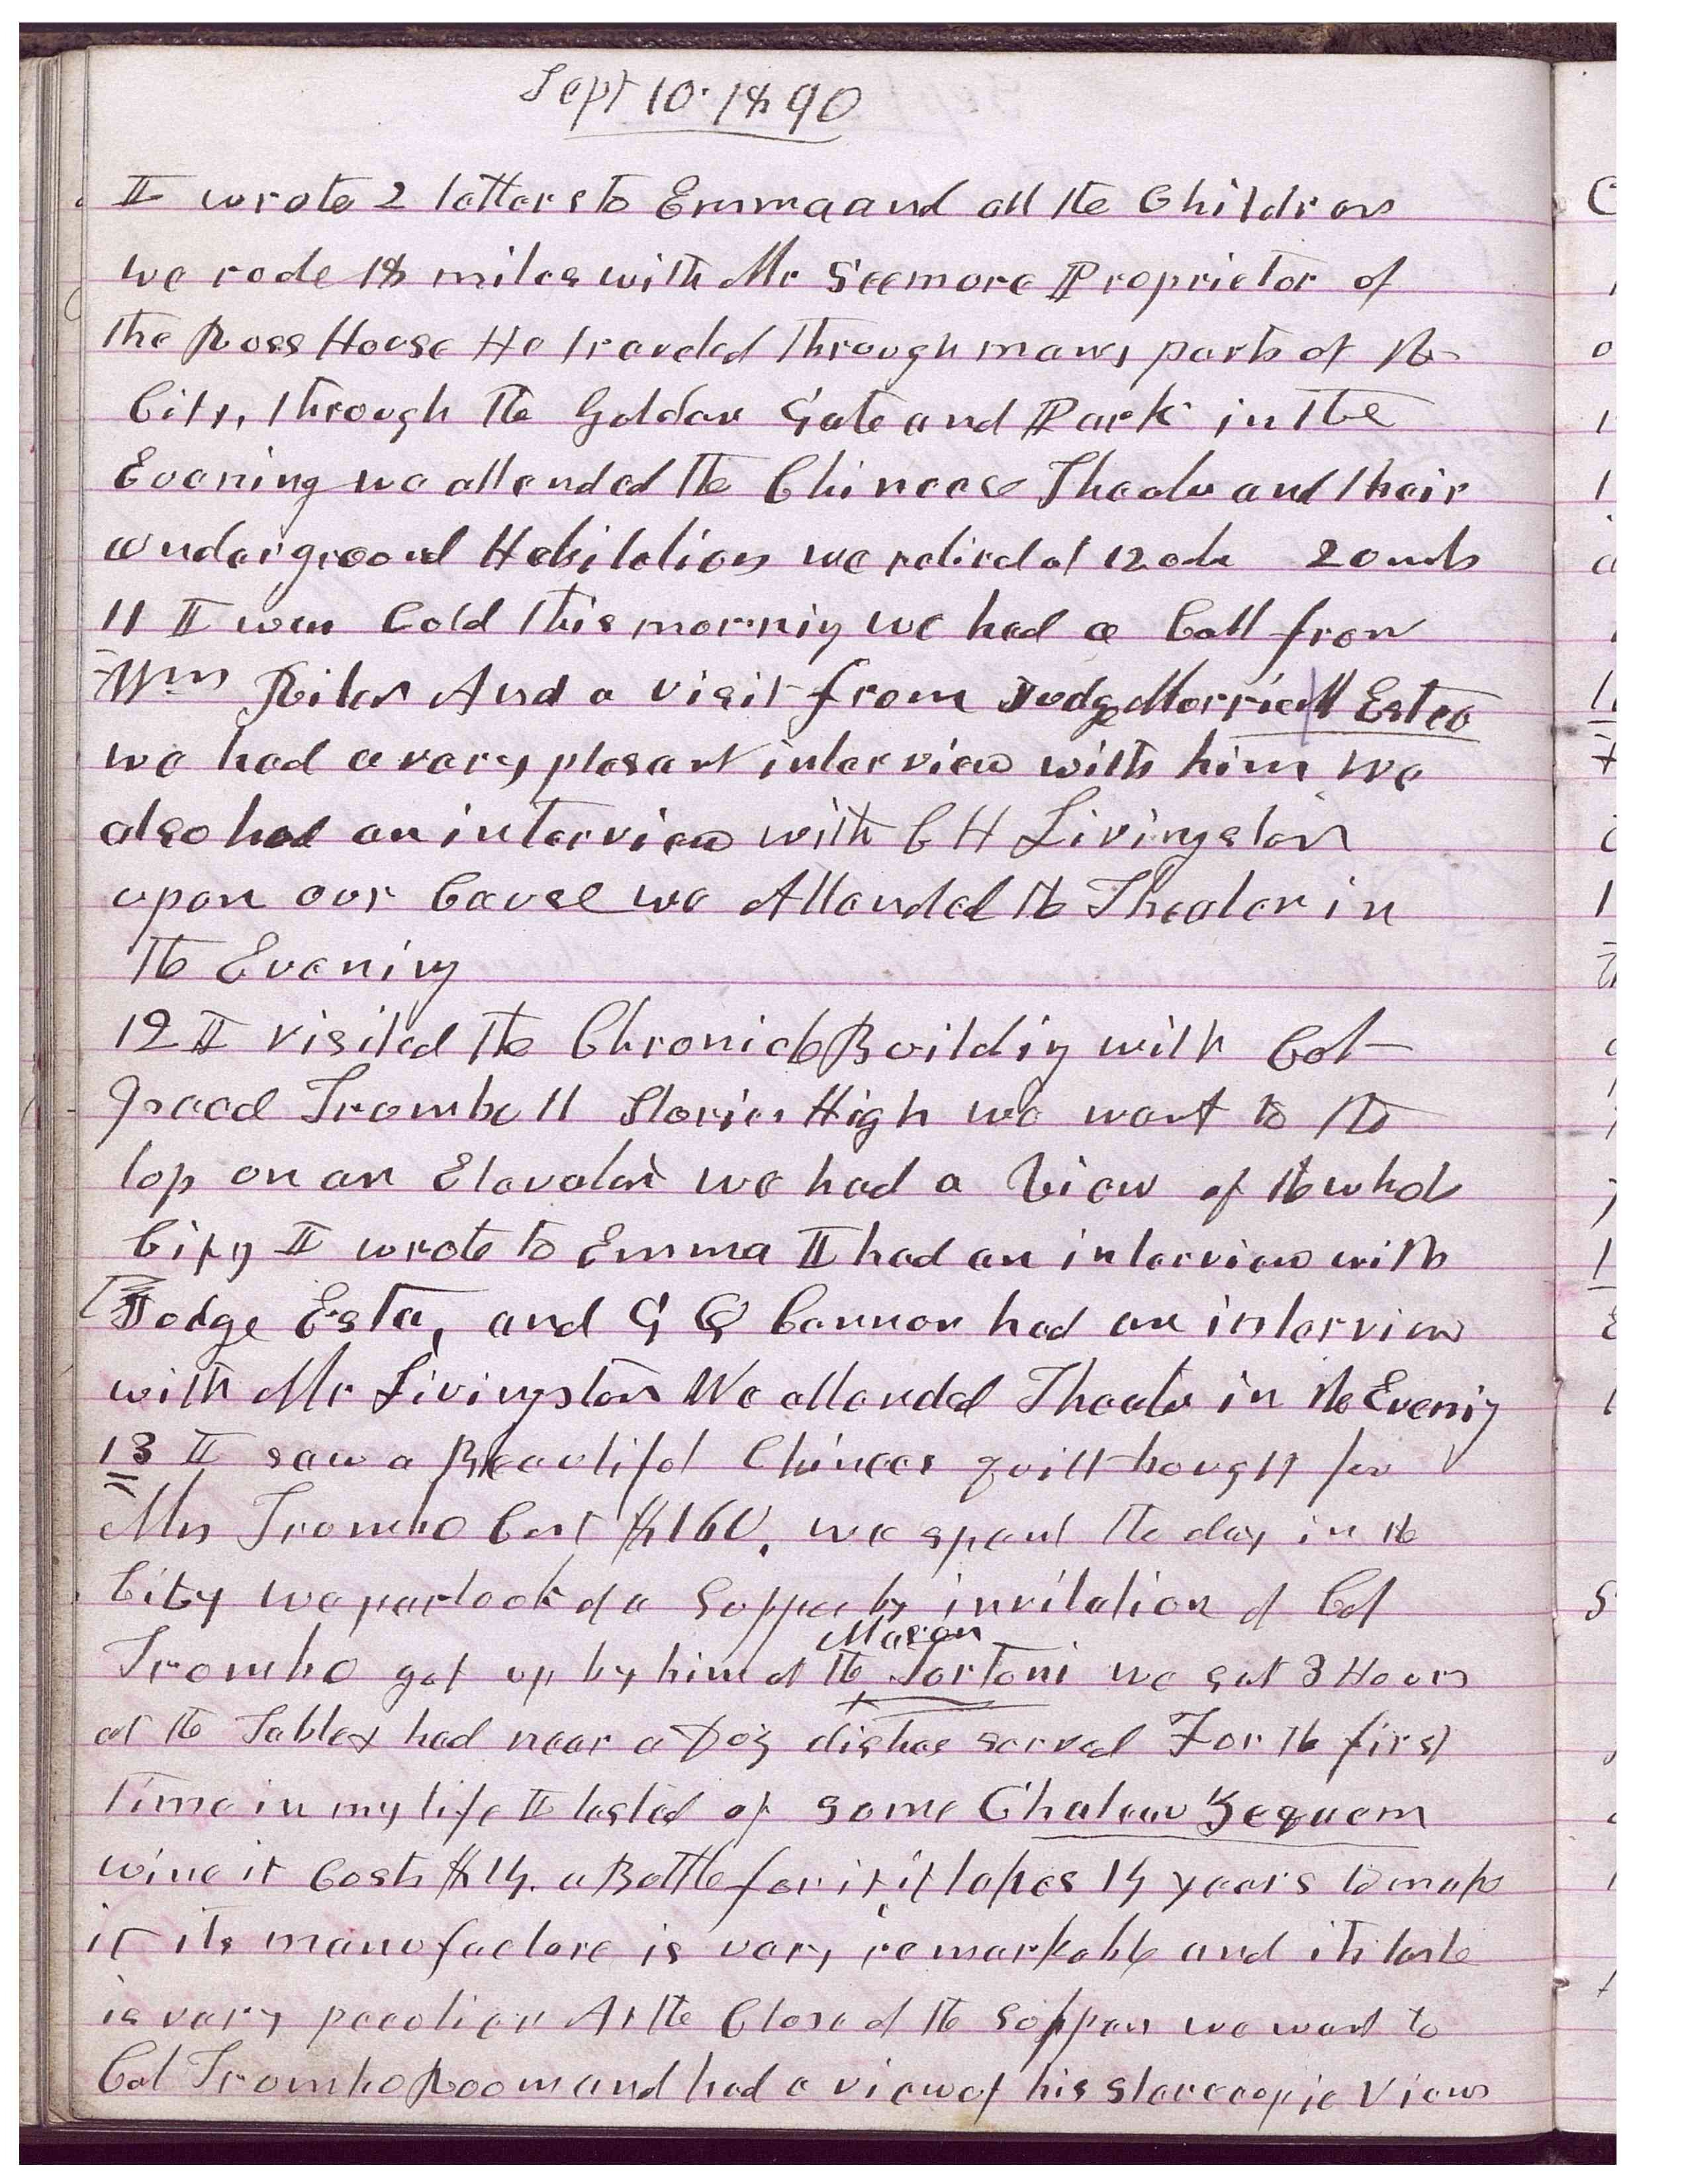 Sept 10. 1890
I wrote 2 letters to Emma and all the Children
we rode 18 miles with Mr Seemore Proprietor of
the Russ House He traveled through many parts of the
City, through the Golden Gate and Park in the
Evening we attended the Chineese Theater and their
underground Habitations we retired at 12 ock 20 mts
11 I was Cold this morning we had a Call from
Wm Riter And a visit from Judge Morriell Estee
we had a very plesant interview with him We
also had an interview with C H Livingston
upon our Cause we Attended the Theater in
the Evening
12 I visited the Chronicle Building with Col
Isaac Trumbo 11 Stories High we went to the
top on an Elevator we had a View of the whole
City I wrote to Emma I had an interview with
Judge Estee, and G Q Cannon had an interview
with Mr Livingston We attended Theater in the Evenig
13 I saw a Beautiful Chinees quilt bought for
Mrs Trumbo Cost $160, we spent the day in the
City we partook of a Supper by invitation of Col
Trumbo got up by him at the Maison Tortoni we sat 3 Hours
at the Tables had near a Doz dishes served For the first
time in my life I tasted of some Chateau Yequem
wine it Costs $14. a Bottle for it it takes 14 years to make
it its manufactore is very remarkable and its taste
is very peculiar At the Close of the Supper we went to
Col Trumbo Room and had a view of his stereopic Views